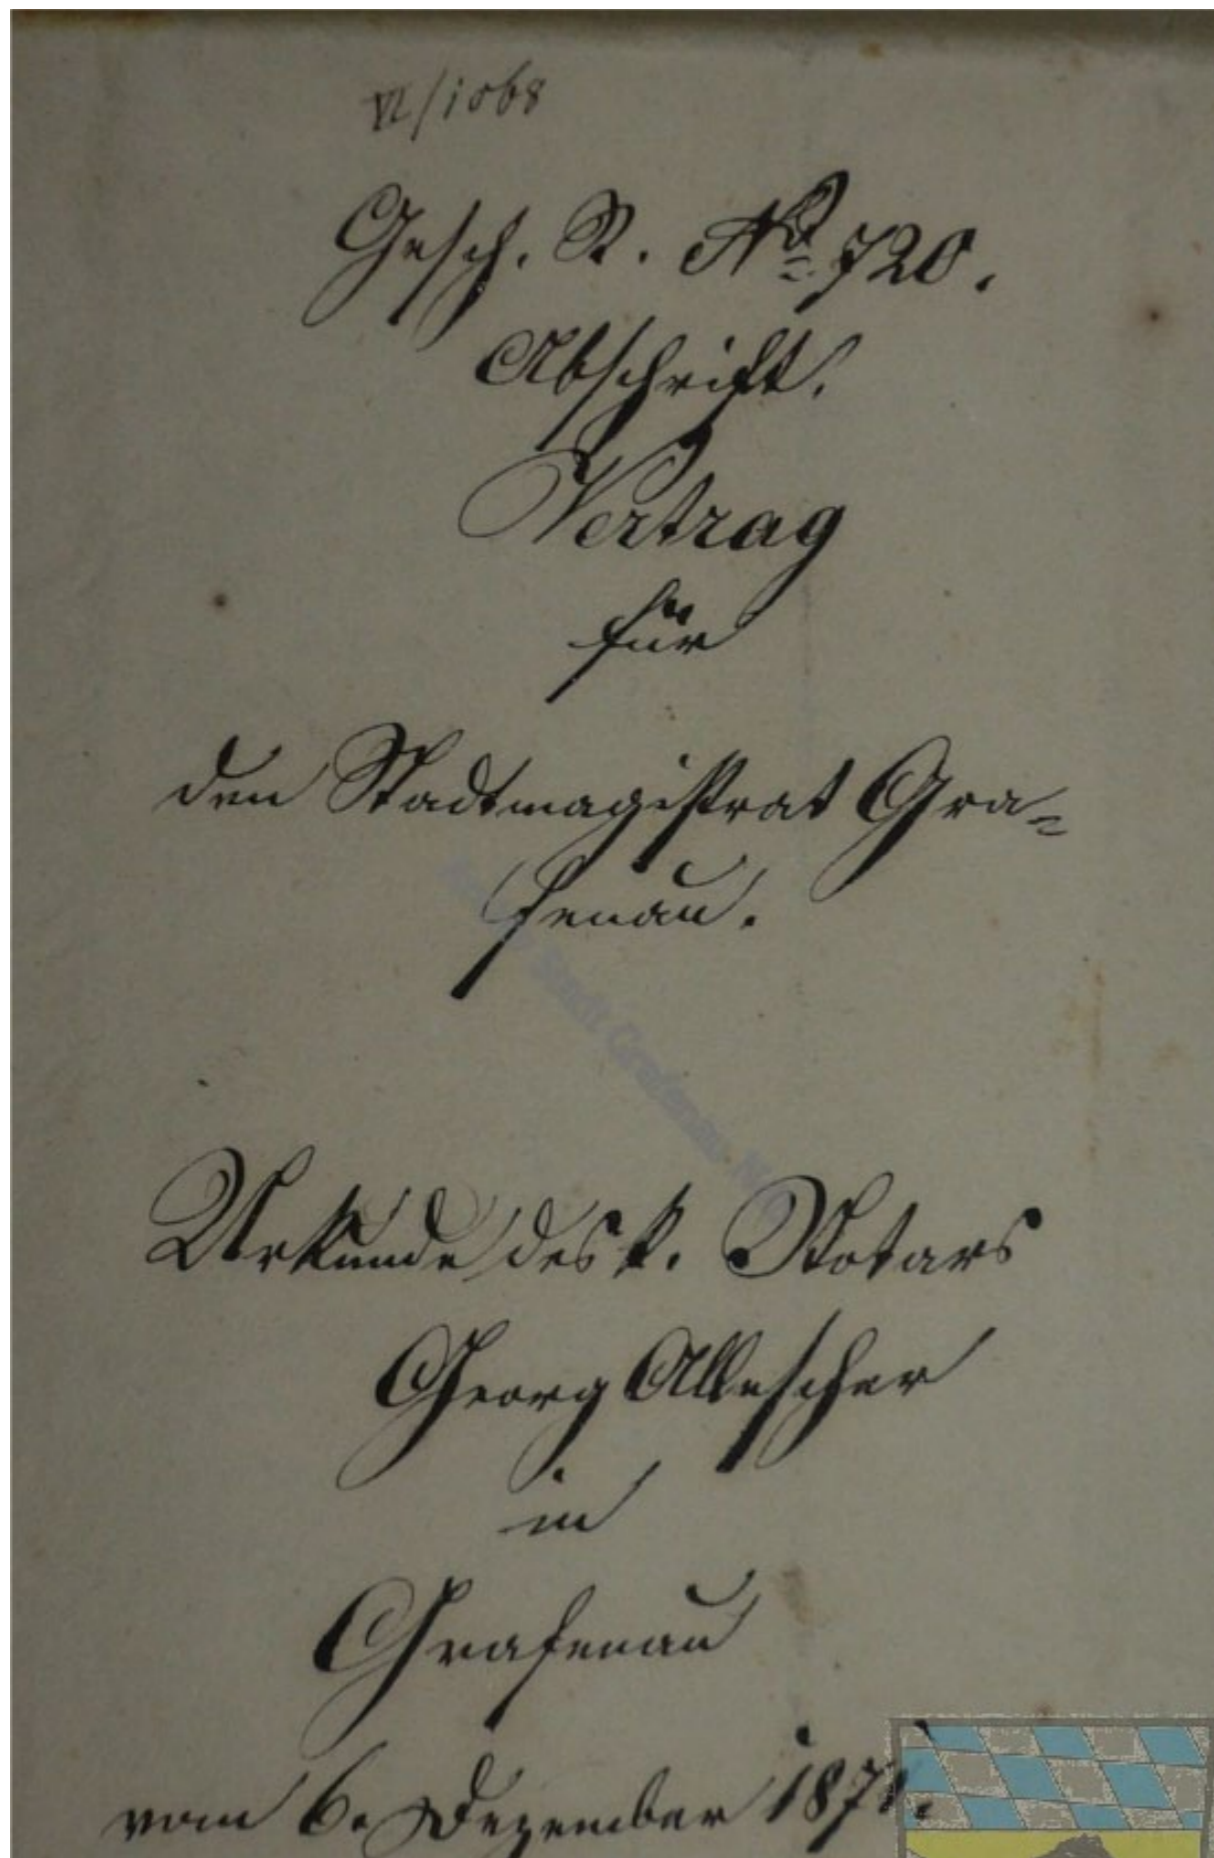 VI/1068
Gesch. R. No 720.
Abschrift.
Vertrag
für
den Stadtmagistrat Gra=
fenau.
Stadt Grafenau
Urkunde des k. Notars
Georg Allescher
in
Grafenau
vom 6. Dezember